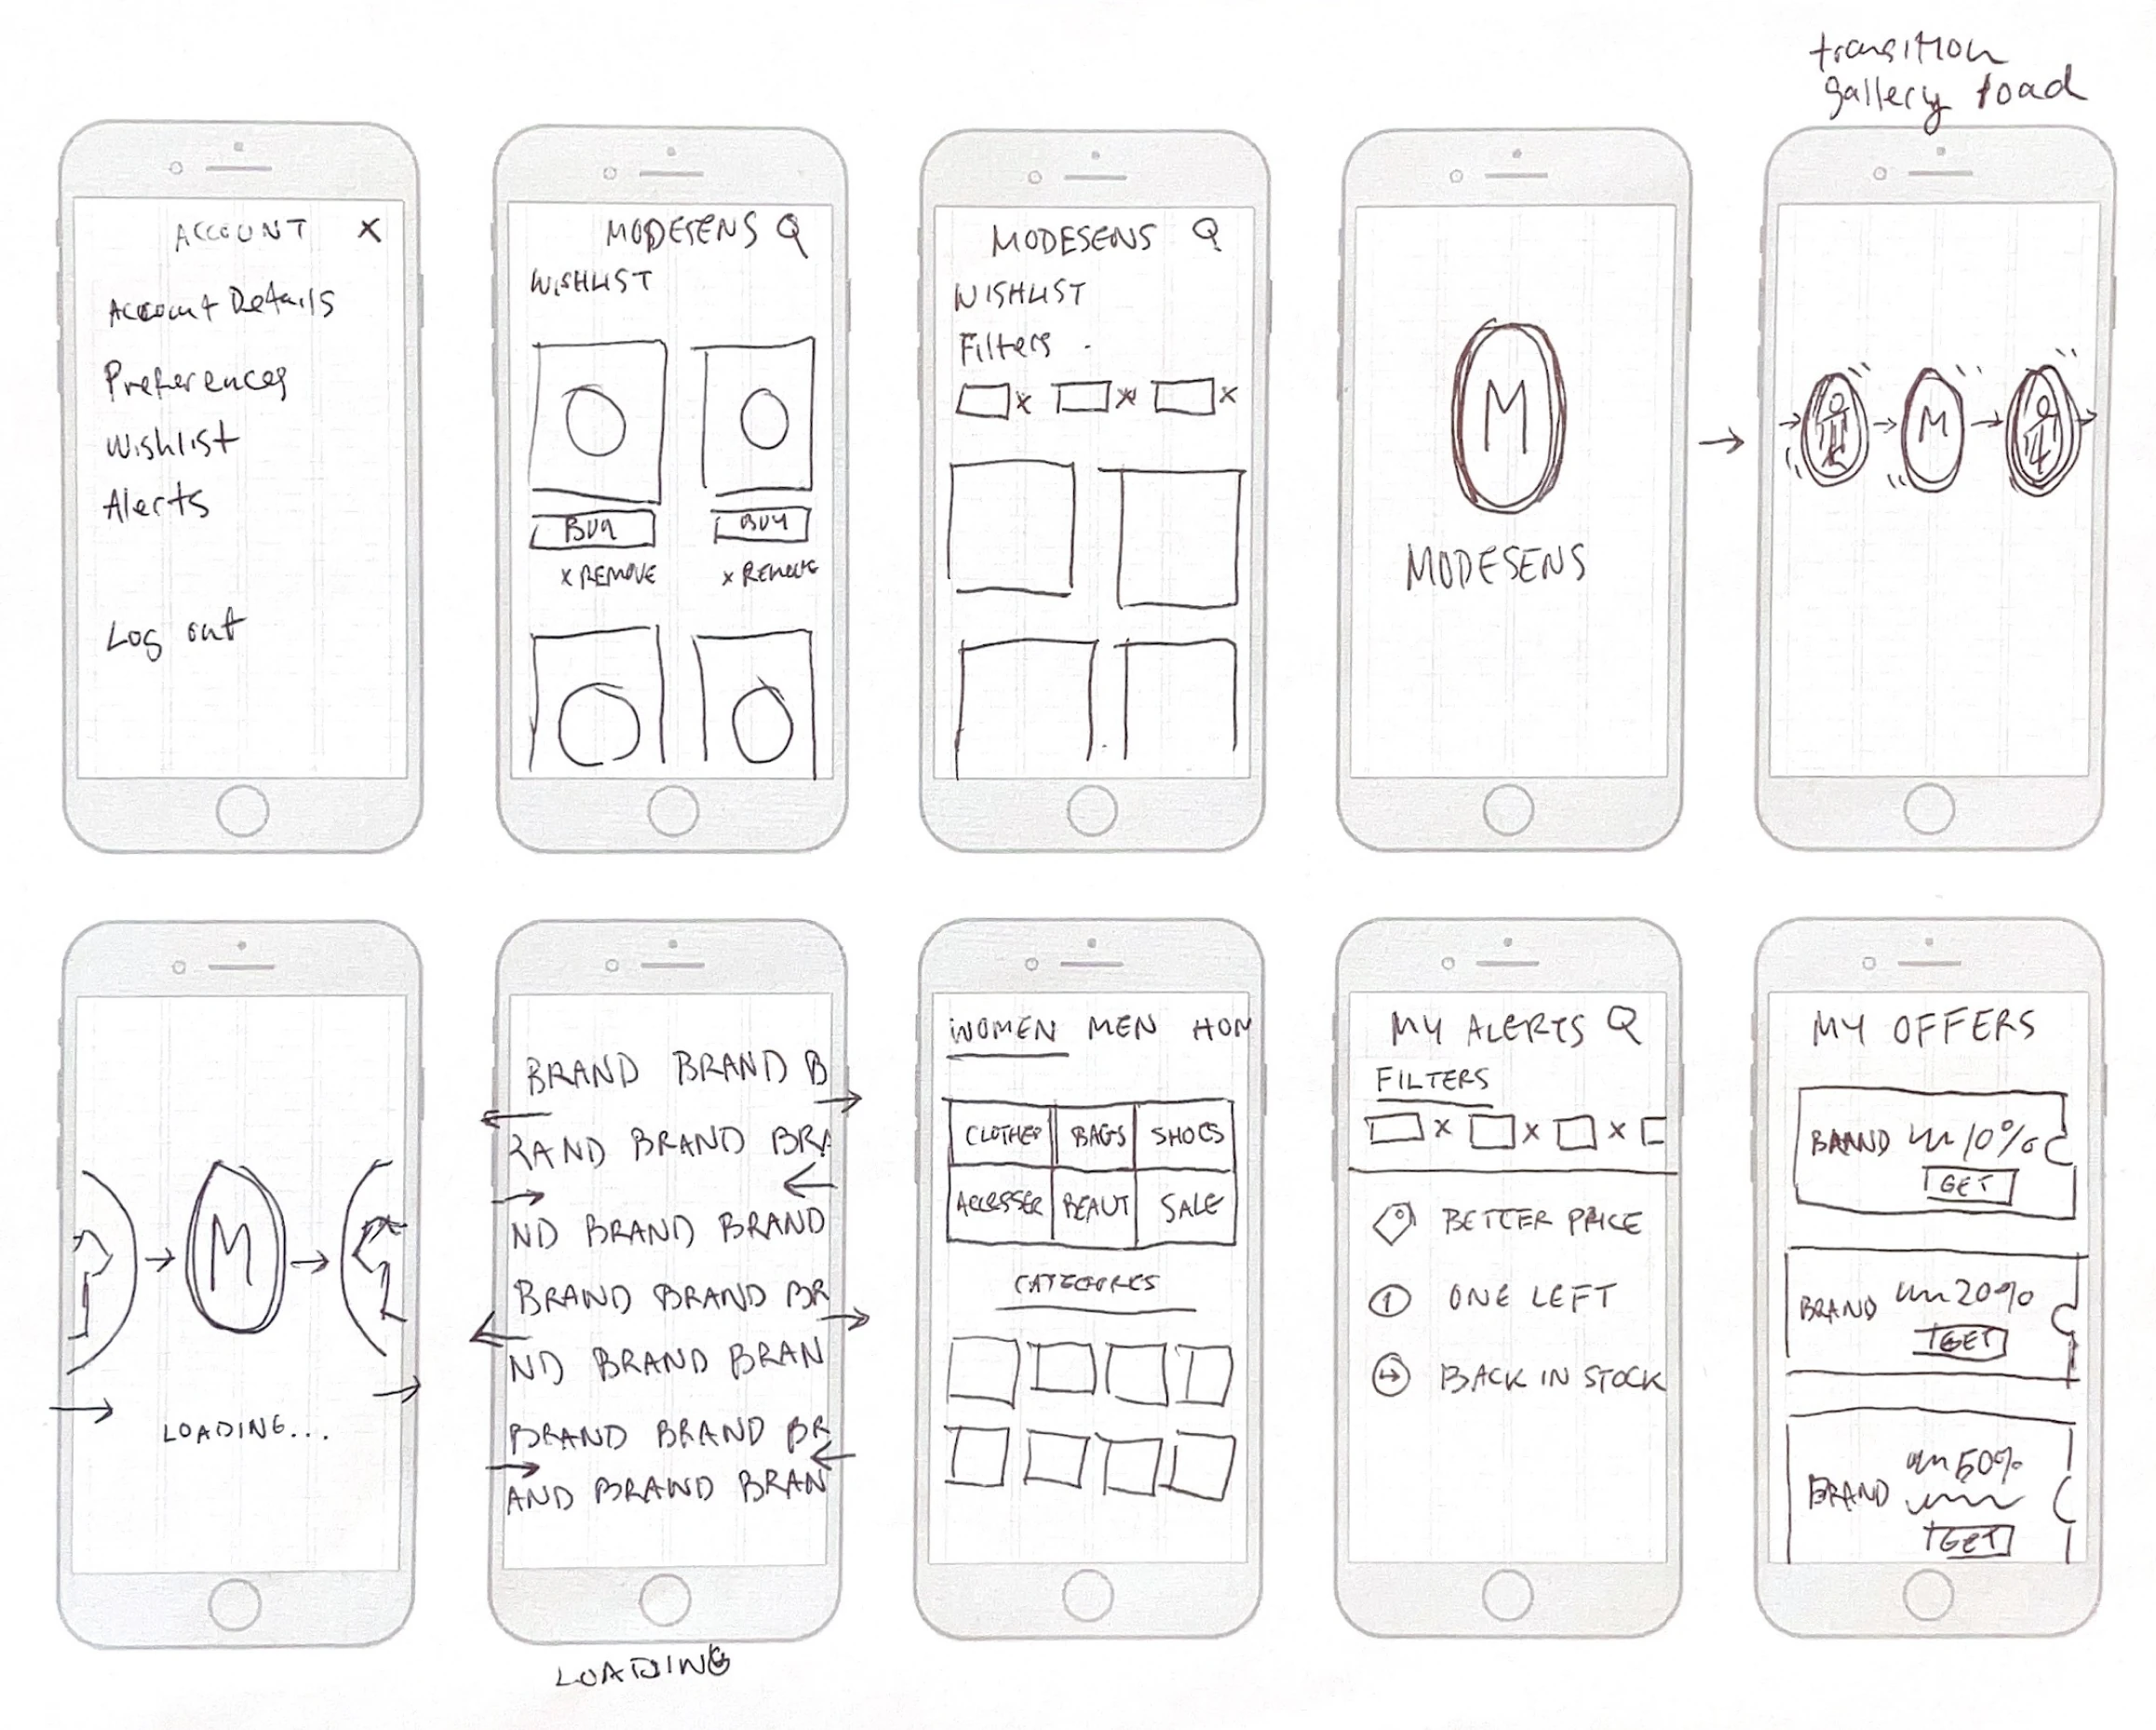 transition
gallery load
ACCOUNT X
Account Details
Preferences
Wishlist
Alerts
Log out
MODESENS
WISHLIST
BUY BUY
x REMOVE x REMOVE
MODESENS
WISHLIST
Filters
x x x
M
MODESENS
M
M
LOADING...
BRAND BRAND B
RAND BRAND BRA
ND BRAND BRAND
BRAND BRAND BR
ND BRAND BRAN
BRAND BRAND BR
AND BRAND BRAN
LOADING
WOMEN MEN HOM
CLOTHES BAGS SHOES
ACCESSER BEAUT SALE
CATEGORES
MY ALERTS
FILTERS
x x x
BETTER PRICE
1 ONE LEFT
BACK IN STOCK
MY OFFERS
BRAND 10%
GET
BRAND 20%
GET
BRAND 50%
GET